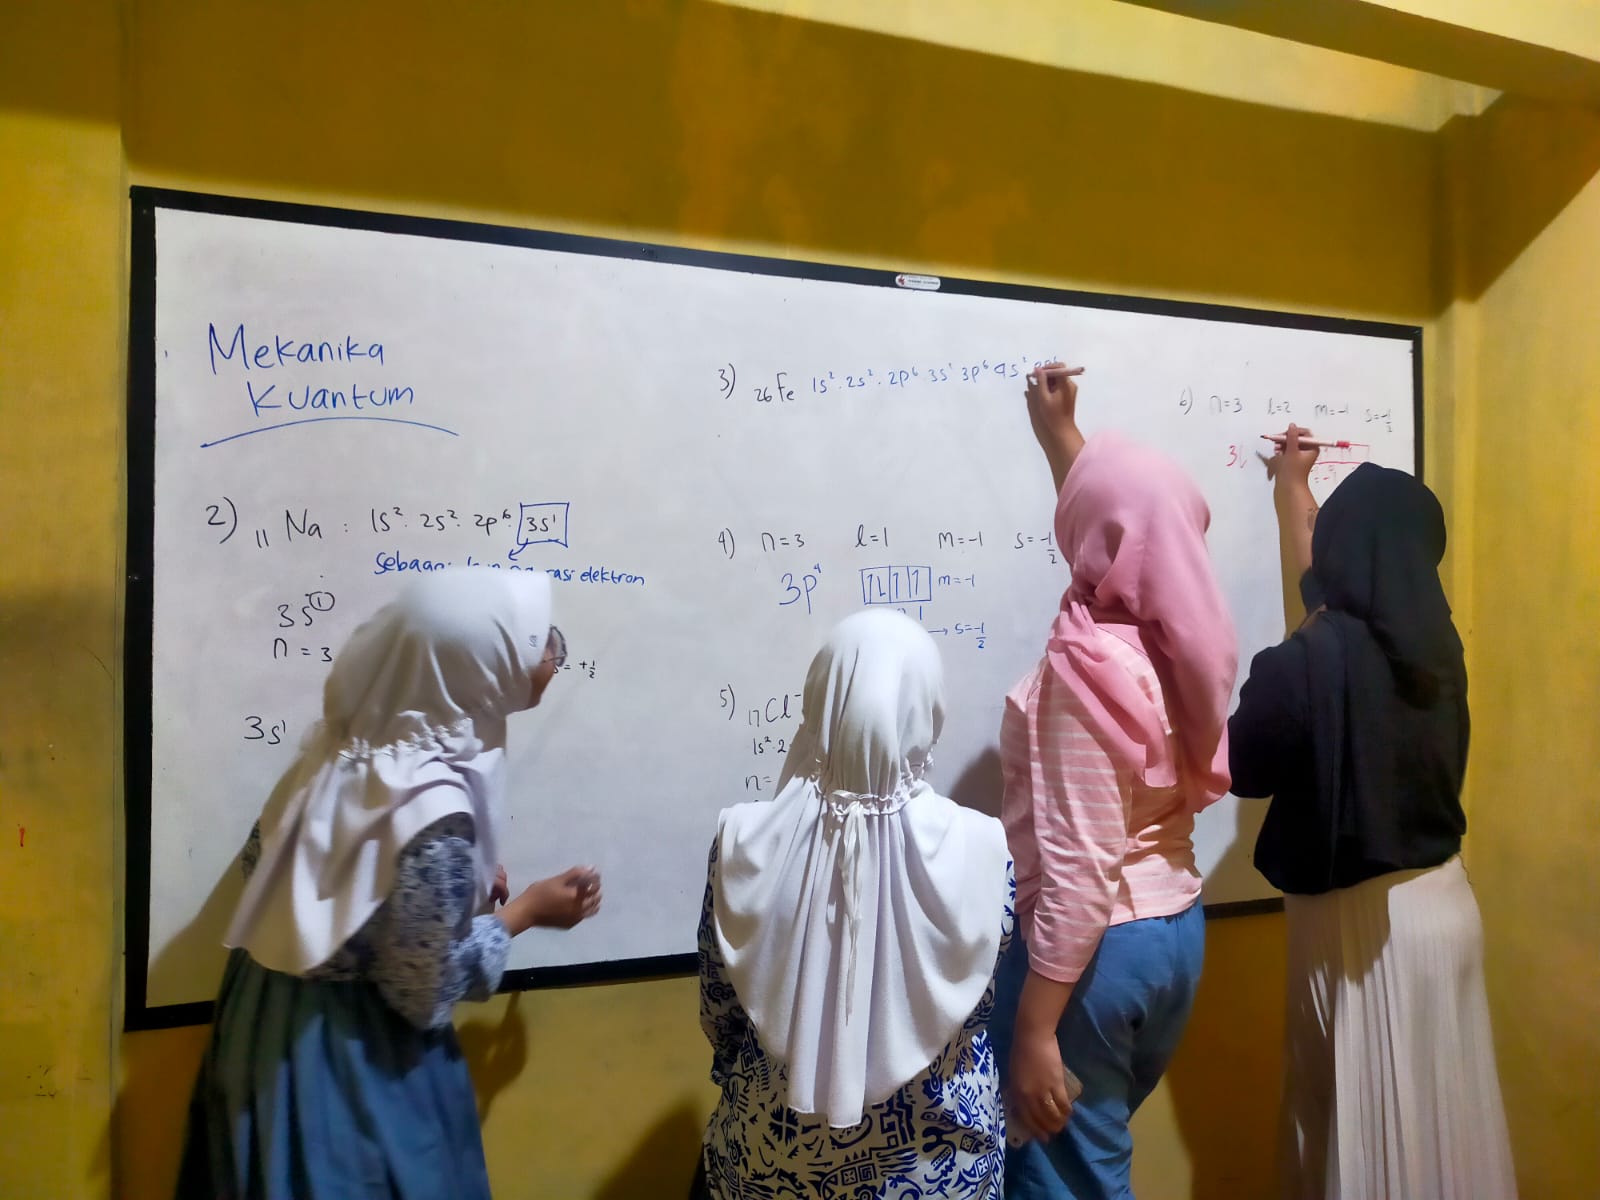 Mekanika
Kuantum
2) 11 Na : 1s² 2s² 2p⁶ 3s¹
elektron
3s①
n = 3
= +1/2
3s¹
3) 26 Fe 1s² 2s² 2p⁶ 3s² 3p⁶ 4s²
4) n=3 l=1 m=-1 s=-1/2
3p⁴ 1L 1 1 m=-1
1
→ s=-1/2
5) 17 Cl⁻
1s² 2
n=
6) n=3 l=2 m=-1 s=-1/2